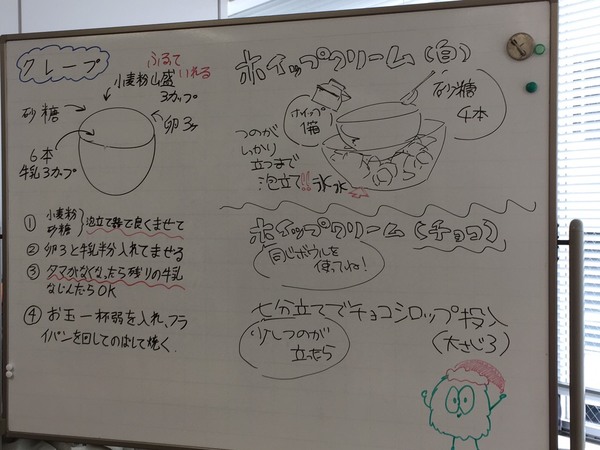 クレープ
ふるって
いれる
小麦粉山盛
3カップ
砂糖
6本
卵3ヶ
牛乳3カップ
① 小麦粉
砂糖
泡立て器で良くまぜて
② 卵3と牛乳半分入れてまぜる
③ タマがなくなったら残りの牛乳
なじんたらOK
④ お玉一杯弱を入れ、フラ
イパンを回してのばして焼く
ホイップクリーム(白)
ホイップ
1箱
砂糖
4本
つのが
しっかり
立つまで
泡立て!!
氷水
ホイップクリーム(チョコ)
同じボウルを
使ってね!
七分立てでチョコシロップ投入
(大さじ3)
少しつのが
立ったら